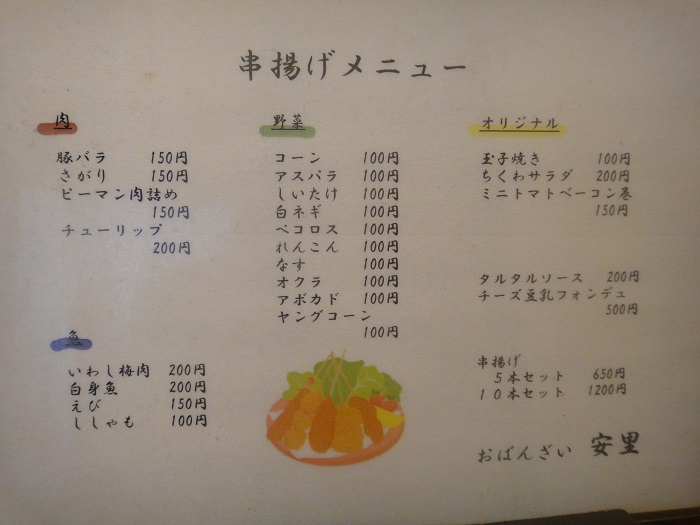 串揚げメニュー
肉
豚バラ 150円
さがり 150円
ピーマン肉詰め
150円
チューリップ
200円
魚
いわし梅肉 200円
白身魚 200円
えび 150円
ししゃも 100円
野菜
コーン 100円
アスパラ 100円
しいたけ 100円
白ネギ 100円
ペコロス 100円
れんこん 100円
なす 100円
オクラ 100円
アボカド 100円
ヤングコーン
100円
オリジナル
玉子焼き 100円
ちくわサラダ 200円
ミニトマトベーコン巻
150円
タルタルソース 200円
チーズ豆乳フォンデュ
500円
串揚げ
5本セット 650円
10本セット 1200円
おばんざい 安里